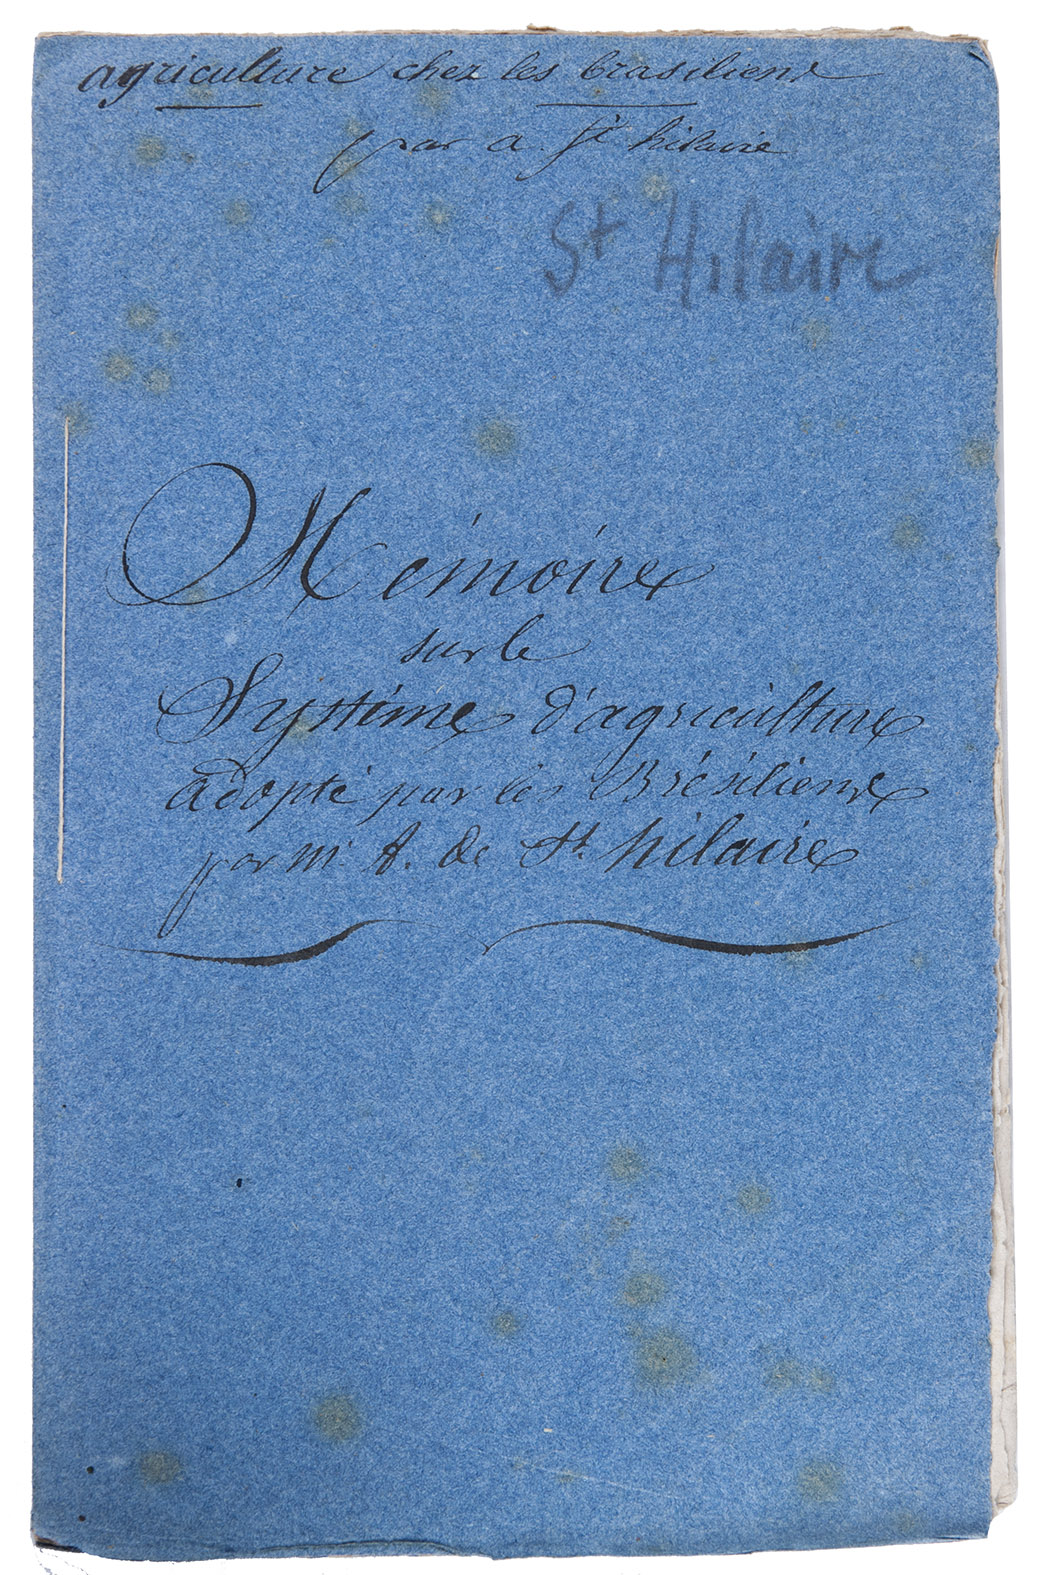 agriculture chez les brasiliens
par a. St hilaire
St Hilaire
Mémoire
sur le
Systême d'agriculture
adopté par les Brésiliens
par mr. A. de St. hilaire